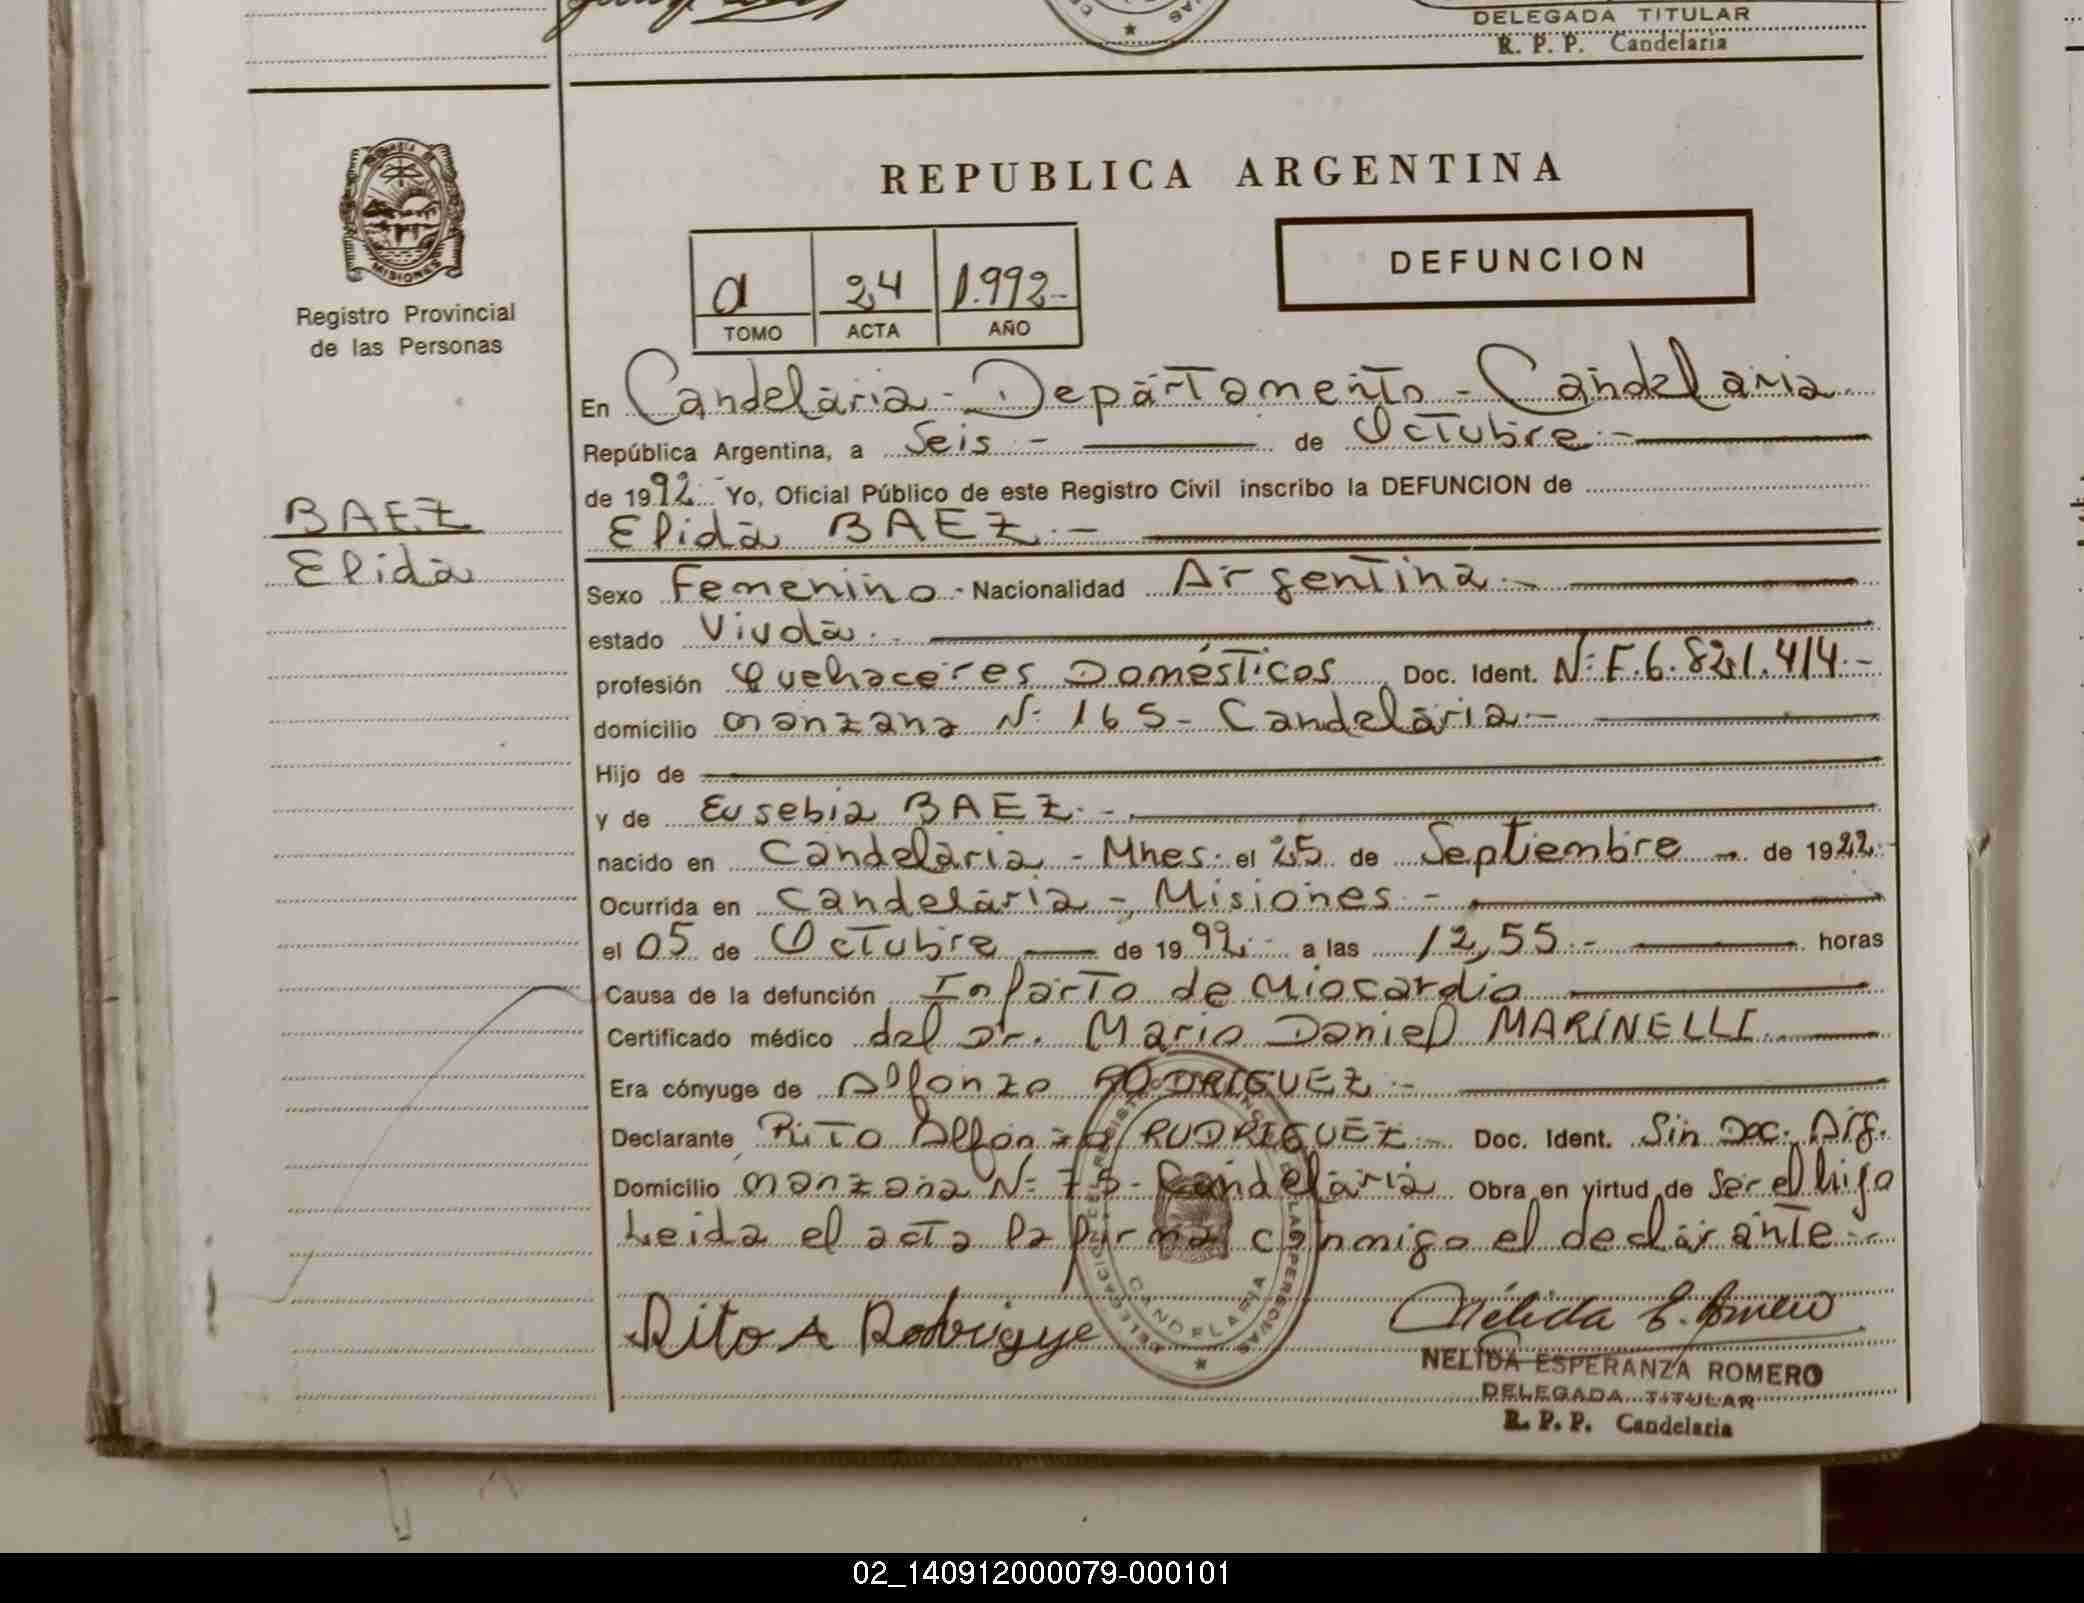 DELEGADA TITULAR
R. P. P. Candelaria
MISIONES
Registro Provincial
de las Personas
REPUBLICA ARGENTINA
DEFUNCION
a 24 1.992-
TOMO ACTA AÑO
En Candelaria - Departamento - Candelaria
República Argentina, a Seis - de Octubre -
de 1992 Yo, Oficial Público de este Registro Civil inscribo la DEFUNCION de
BAEZ
Elida
Elida BAEZ -
Sexo Femenino - Nacionalidad Argentina -
estado Viuda.
profesión Quehaceres Domésticos Doc. Ident. Nº F. 6.821.414 -
domicilio manzana Nº 165 - Candelaria -
Hijo de
y de Eusebia BAEZ. -
nacido en Candelaria - Mnes. el 25 de Septiembre - de 1922
Ocurrida en Candelaria - Misiones -
el 05 de Octubre de 1992 a las 12,55 - horas
Causa de la defunción Infarto de Miocardio
Certificado médico del Dr. Mario Daniel MARINELLI
Era cónyuge de Alfonzo RODRIGUEZ -
Declarante Rito Alfonzo RODRIGUEZ - Doc. Ident. Sin Doc. Arg.
Domicilio manzana Nº 75 - Candelaria Obra en virtud de Ser el hijo
Leida el acta la firma conmigo el declarante -
CANDELARIA
Rito A Rodrigue
Nélida E. Romero
NELIDA ESPERANZA ROMERO
DELEGADA TITULAR
R. P. P. Candelaria
02_140912000079-000101